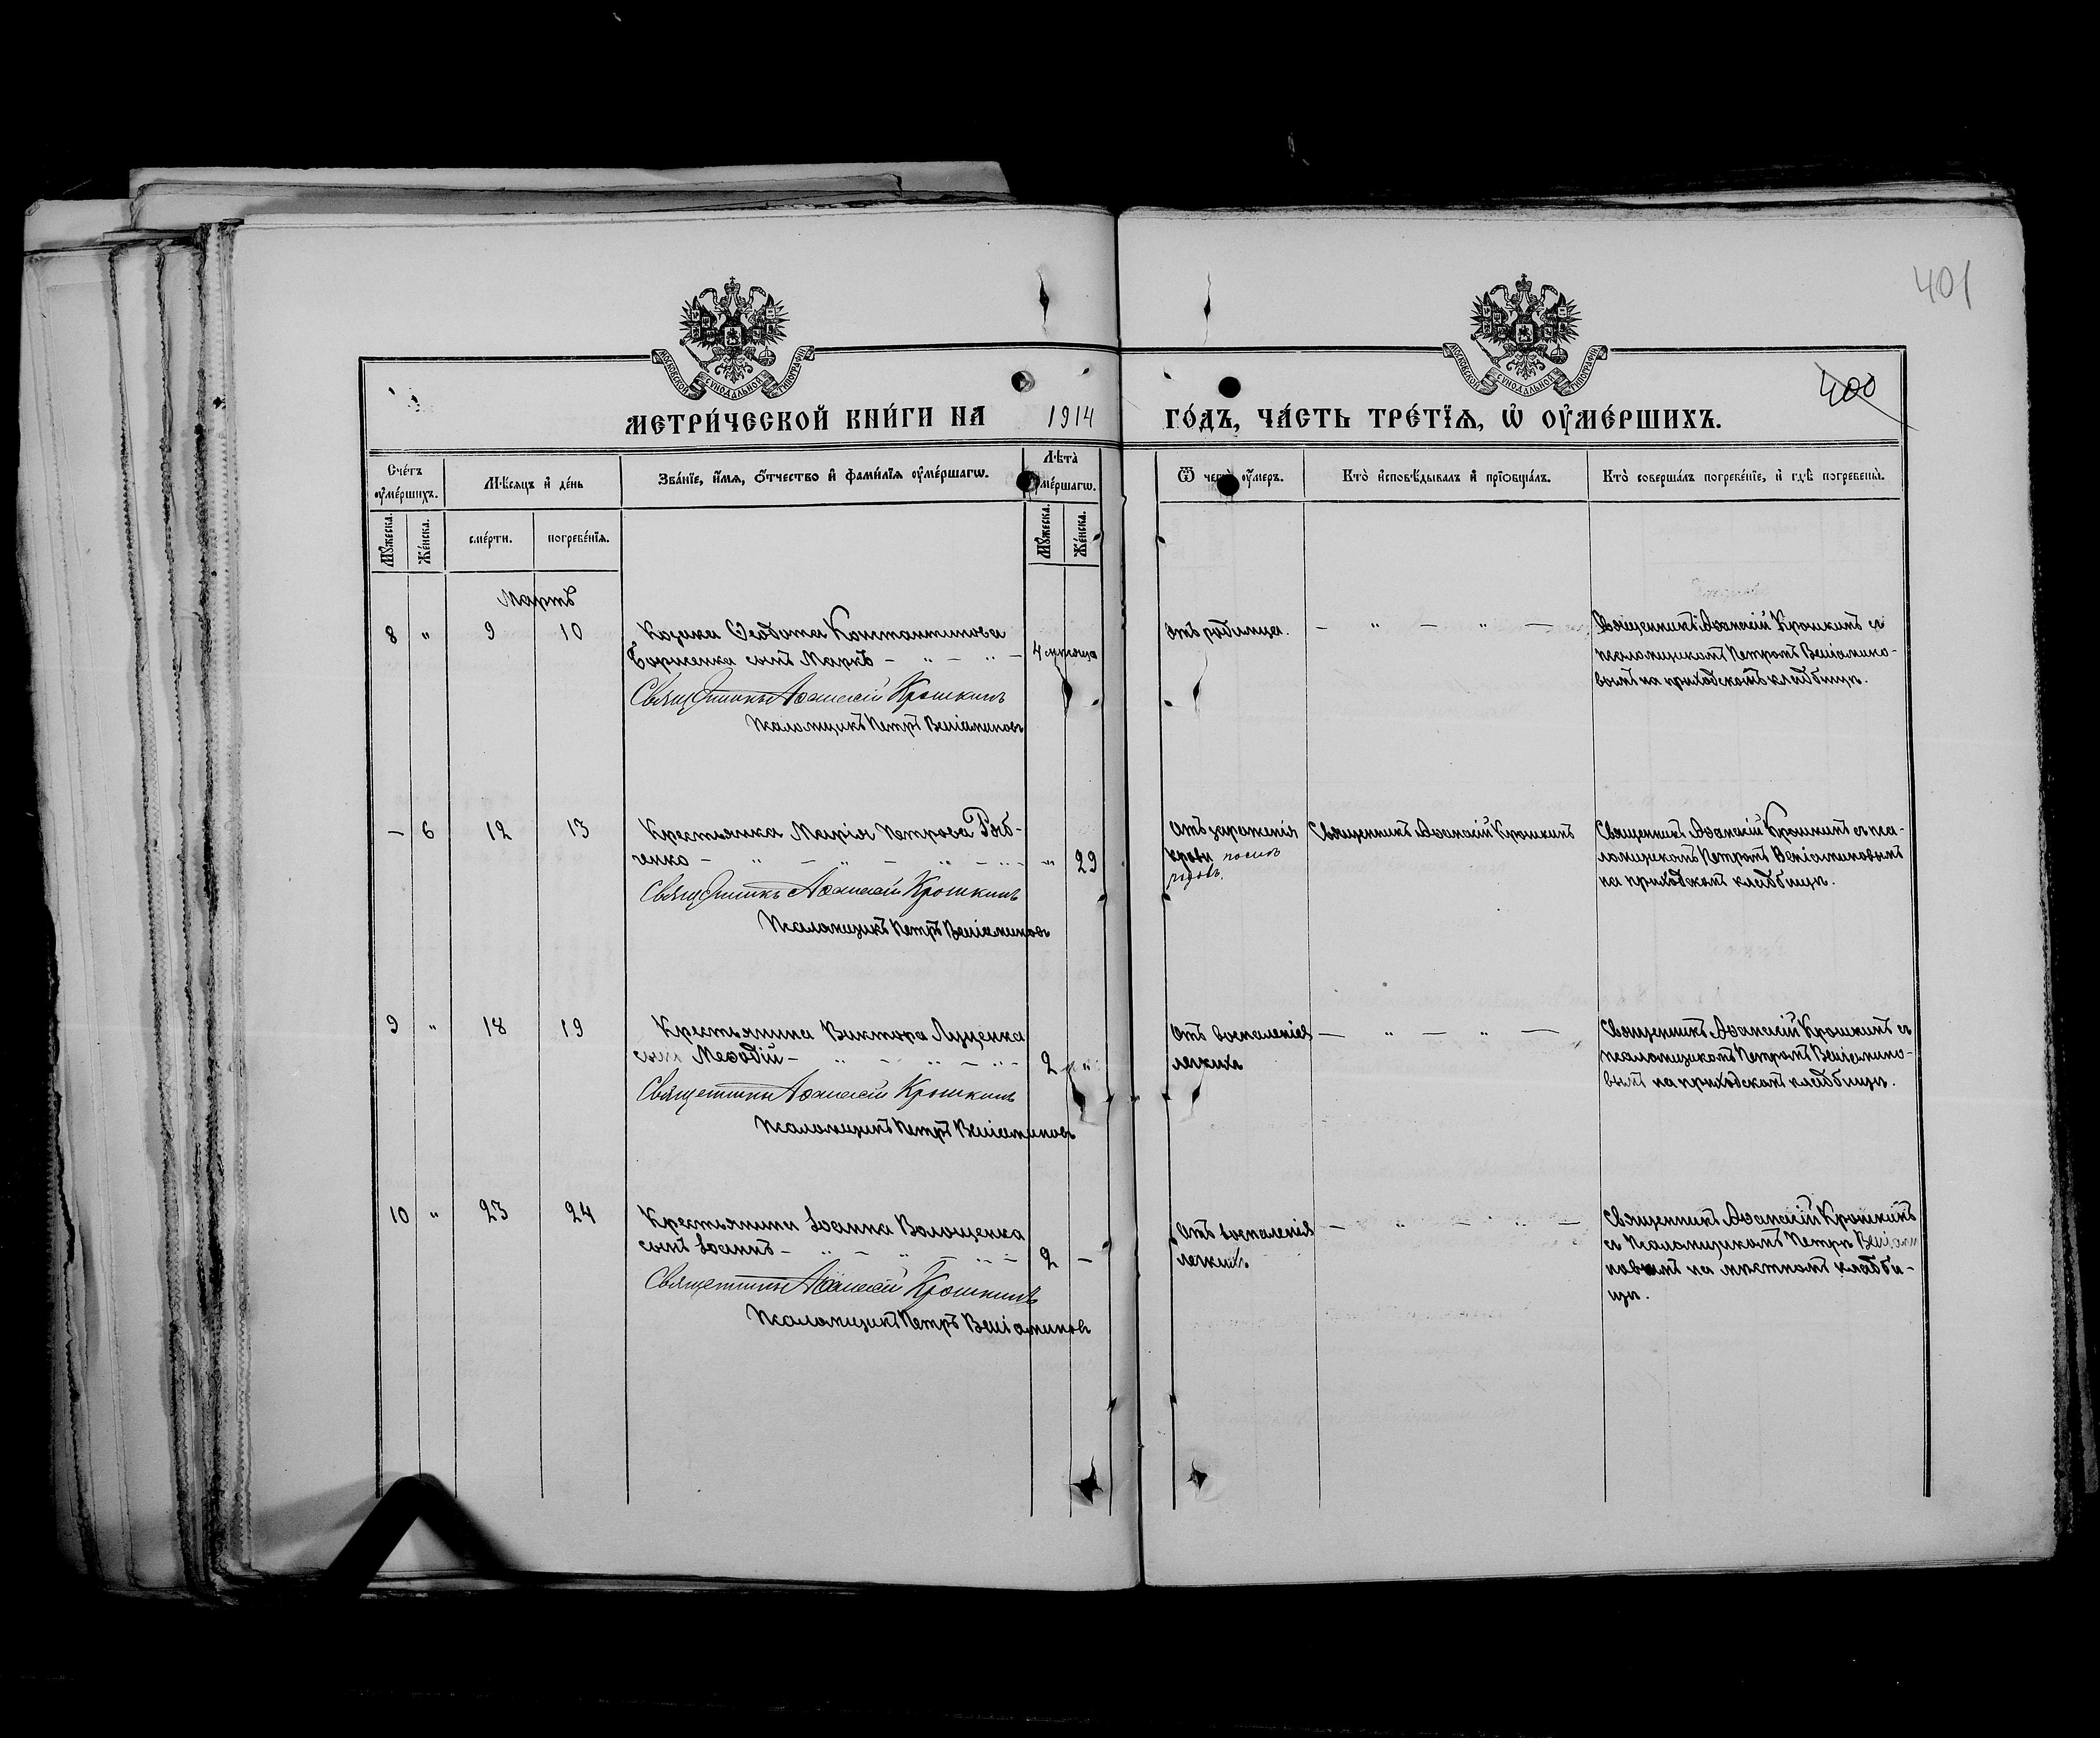 401
МОСКОВСКОЙ СУНОДАЛЬНОЙ ТИПОГРАФІИ
МОСКОВСКОЙ СУНОДАЛЬНОЙ ТИПОГРАФІИ
400
МЕТРИ́ЧЕСКОЙ КНИ́ГИ НА 1914 ГО́ДЪ, ЧА́СТЬ ТРЕ́ТЇѦ, Ѡ҆ ОУ҆МЕ́РШИХЪ.
Сче́тъ оу҆ме́ршихъ.
Мѣ́сяцъ и҆ де́нь
Зва́нїе, и҆́мя, о҆́тчество и҆ фами́лїя оу҆ме́ршагѡ.
Лѣта̀ оу҆ме́ршагѡ.
Ѿ чегѡ̀ оу҆́меръ.
Кто̀ и҆сповѣ́дывалъ и҆ прїѡбща́лъ.
Кто̀ соверша́лъ погребе́нїе, и҆ гдѣ̀ погребены̀.
Мꙋ́жеска.
Же́нска.
сме́рти.
погребе́нїя.
Мꙋ́жеска.
Же́нска.
Мартъ
8 " 9 10 Козака Ѳеодота Константинова
сынъ Маркъ — " — " — 4 месяца
Священникъ Аѳанасій Крошкинъ
Псаломщикъ Петръ Веніаминовъ
Отъ родимца. — " — " —
Священникъ Аѳанасій Крошкинъ съ
псаломщикомъ Петромъ Веніамино-
вымъ на приходскомъ кладбищѣ.
— 6 12 13 Крестьянка Марія Петрова Ряб-
ченко — " — " — " — " 29
Священникъ Аѳанасій Крошкинъ
Псаломщикъ Петръ Веніаминовъ
Отъ зараженія
крови послѣ
родовъ.
Священникъ Аѳанасій Крошкинъ
Священникъ Аѳанасій Крошкинъ съ пса-
ломщикомъ Петромъ Веніаминовымъ
на приходскомъ кладбищѣ.
9 " 18 19 Крестьянина Виктора Луценка
сынъ Меѳодій — " — " — " — 2 "
Священникъ Аѳанасій Крошкинъ
Псаломщикъ Петръ Веніаминовъ
Отъ воспаленія
легкихъ
— " — " —
Священникъ Аѳанасій Крошкинъ съ
псаломщикомъ Петромъ Веніамино-
вымъ на приходскомъ кладбищѣ.
10 " 23 24 Крестьянина Іоанна Волощенка
сынъ Іоаннъ — " — " — " — 2 —
Священникъ Аѳанасій Крошкинъ
Псаломщикъ Петръ Веніаминовъ
Отъ воспаленія
легкихъ
— " — " —
Священникъ Аѳанасій Крошкинъ
съ псаломщикомъ Петръ Веніами
новымъ на мѣстномъ кладби-
щѣ.